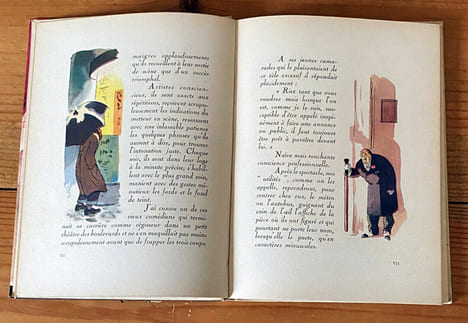 maigres applaudissements
qu'ils recueillent à leur sortie
de scène que d'un succès
triomphal.
Artistes conscien-
cieux, ils sont exacts aux
répétitions, reçoivent scrupu-
leusement les indications du
metteur en scène, revoient
avec une inlassable patience
les quelques phrases qu'ils
auront à dire, pour trouver
l'intonation juste. Chaque
soir, ils sont dans leur loge
à la minute précise, s'habil-
lent avec le plus grand soin,
manient avec des gestes mi-
nutieux les fards et le fond
de teint.
J'ai connu un de ces
vieux comédiens qui termi-
nait sa carrière comme régisseur dans un petit
théâtre des boulevards et ne s'en maquillait pas moins
scrupuleusement avant que de frapper les trois coups.
VI
A ses jeunes cama-
rades qui le plaisantaient de
ce zèle excessif il répondait
placidement :
« Riez tant que vous
voudrez mais lorsque l'on
est, comme je le suis, sus-
ceptible d'être appelé inopi-
nément à faire une annonce
au public, il faut toujours
être prêt à paraître devant
lui. »
Naïve mais touchante
conscience professionnelle.
Après le spectacle, nos
" utilités ", comme on les
appelle, reprendront, pour
rentrer chez eux, le métro
ou l'autobus, guignant du
coin de l'œil l'affiche de la
pièce où ils ont figuré et qui
pourtant ne porte leur nom,
lorsqu'elle le porte, qu'en
caractères minuscules.
VII